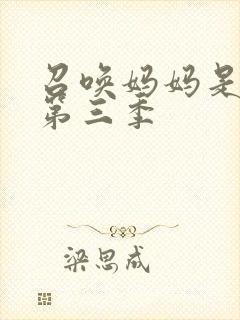 召唤妈妈是
第三季
梁思成